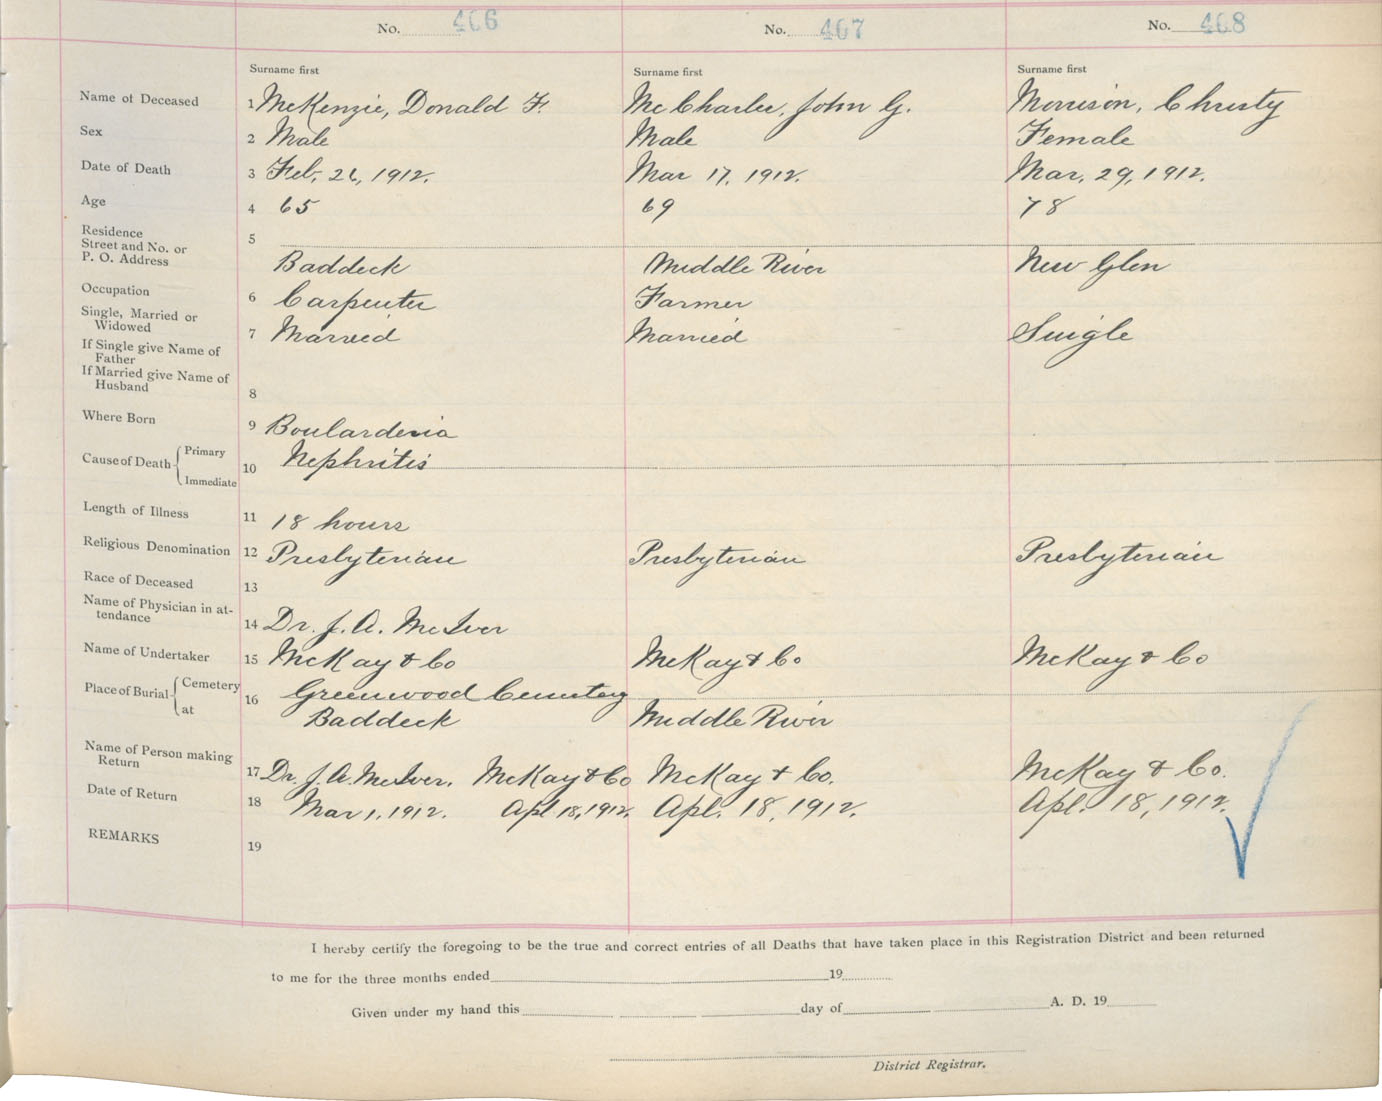 No. 406 No. 407 No. 408
Surname first Surname first Surname first
Name of Deceased 1 McKenzie, Donald F. McCharles, John G. Morrison, Christy
Sex 2 Male Male Female
Date of Death 3 Feb. 26, 1912. Mar 17, 1912. Mar, 29, 1912.
Age 4 65 69 78
Residence
Street and No. or 5
P. O. Address Baddeck Middle River New Glen
Occupation 6 Carpenter Farmer
Single, Married or
Widowed 7 Married Married Single
If Single give Name of
Father
If Married give Name of
Husband 8
Where Born 9 Boularderia
Cause of Death Primary 10 Nephritis
Immediate
Length of Illness 11 18 hours
Religious Denomination 12 Presbyterian Presbyterian Presbyterian
Race of Deceased 13
Name of Physician in at-
tendance 14 Dr. J. A. McIver
Name of Undertaker 15 McKay & Co McKay & Co McKay & Co
Place of Burial Cemetery 16 Greenwood Cemetery
at Baddeck Middle River
Name of Person making
Return 17 Dr. J. A. McIver. McKay & Co McKay & Co. McKay & Co.
Date of Return 18 Mar 1, 1912. Apl 18, 1912. Apl. 18, 1912. Apl. 18, 1912.
REMARKS 19
I hereby certify the foregoing to be the true and correct entries of all Deaths that have taken place in this Registration District and been returned
to me for the three months ended 19
Given under my hand this day of A. D. 19
District Registrar.